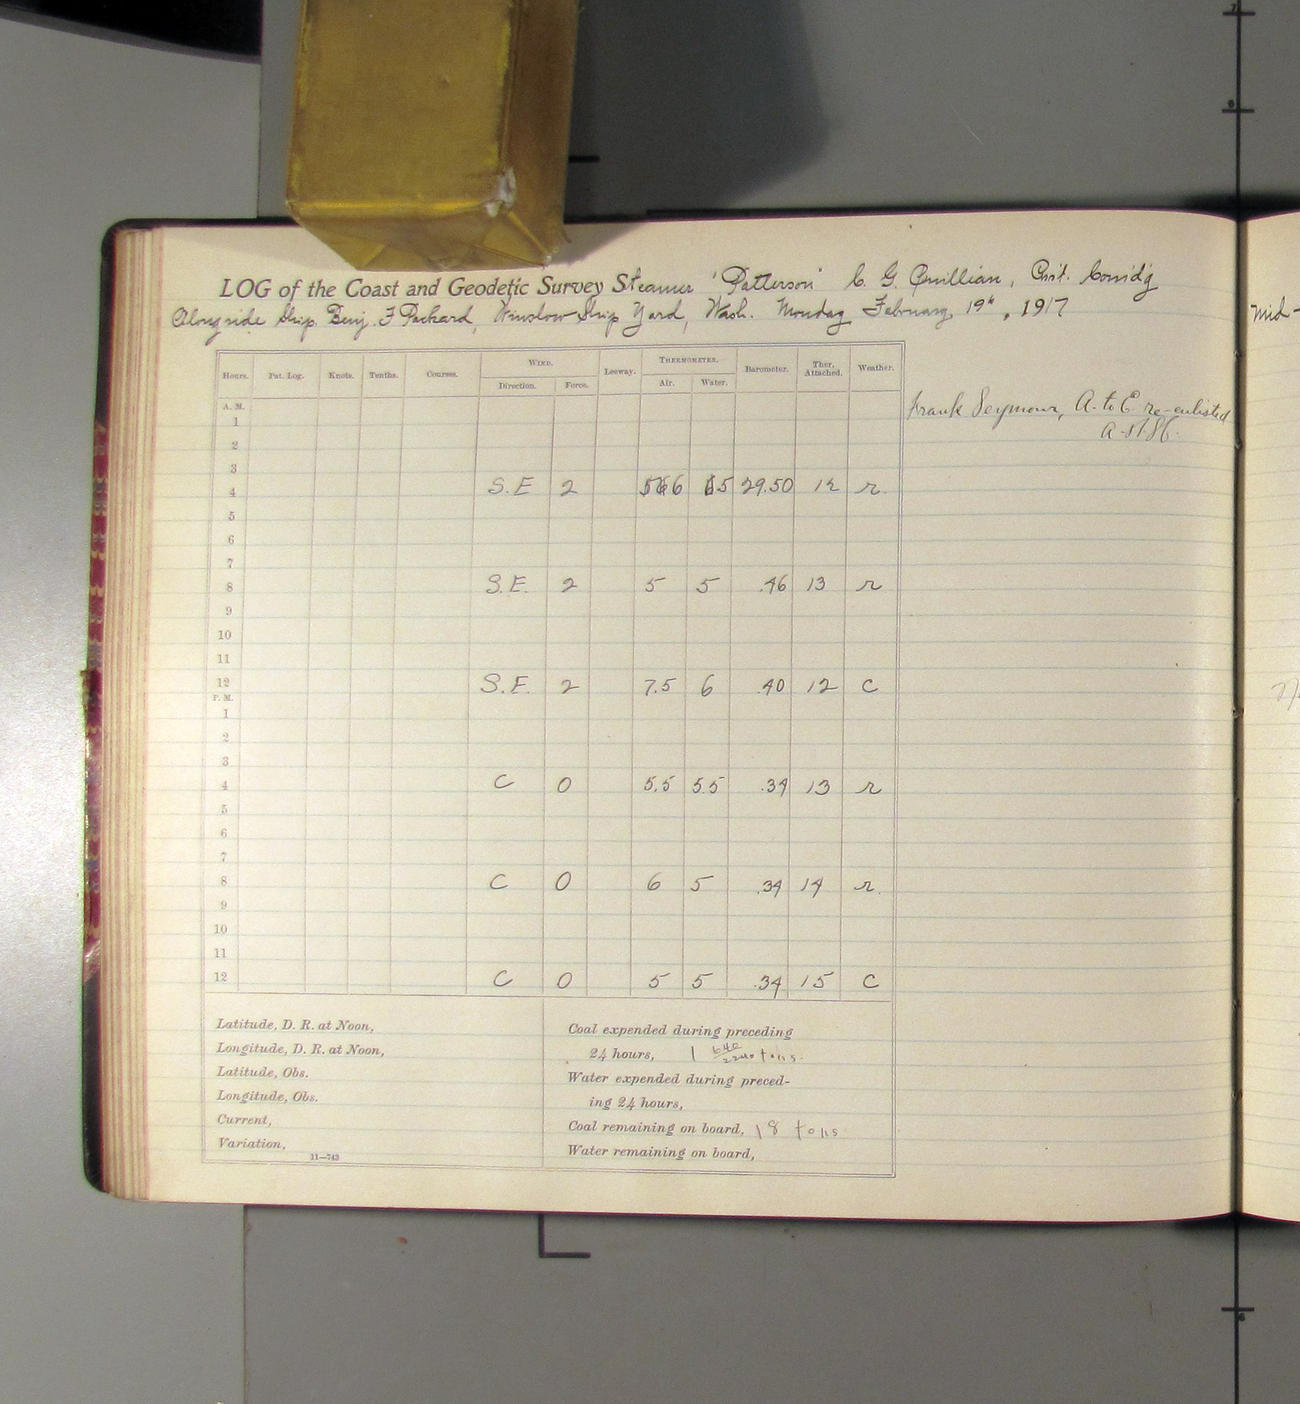 LOG of the Coast and Geodetic Survey Steamer "Patterson" C. G. Quillian, Asst. Com'd'g
Alongside Ship Benj. F Packard, Winslow Ship Yard, Wash. Monday February 19th, 1917
Hours. Pat. Log. Knots. Tenths. Courses. WIND. Leeway. THERMOMETER. Barometer. Ther. Attached. Weather.
Direction. Force. Air. Water.
A. M.
Frank Seymour, A. to E. re-enlisted
1
2
3
4 S.E 2 6 5 29.50 12 r.
5
6
7
8 S.E. 2 5 5 .46 13 r
9
10
11
12 S.E. 2 7.5 6 .40 12 c
P. M.
1
2
3
4 C 0 5.5 5.5 .34 13 r
5
6
7
8 C 0 6 5 .34 14 r.
9
10
11
12 C 0 5 5 .34 15 c
Latitude, D. R. at Noon,
Longitude, D. R. at Noon,
Latitude, Obs.
Longitude, Obs.
Current,
Variation,
11—743
Coal expended during preceding
24 hours, 1 640/2240 tons.
Water expended during preced-
ing 24 hours,
Coal remaining on board, 18 tons
Water remaining on board,
Mid-